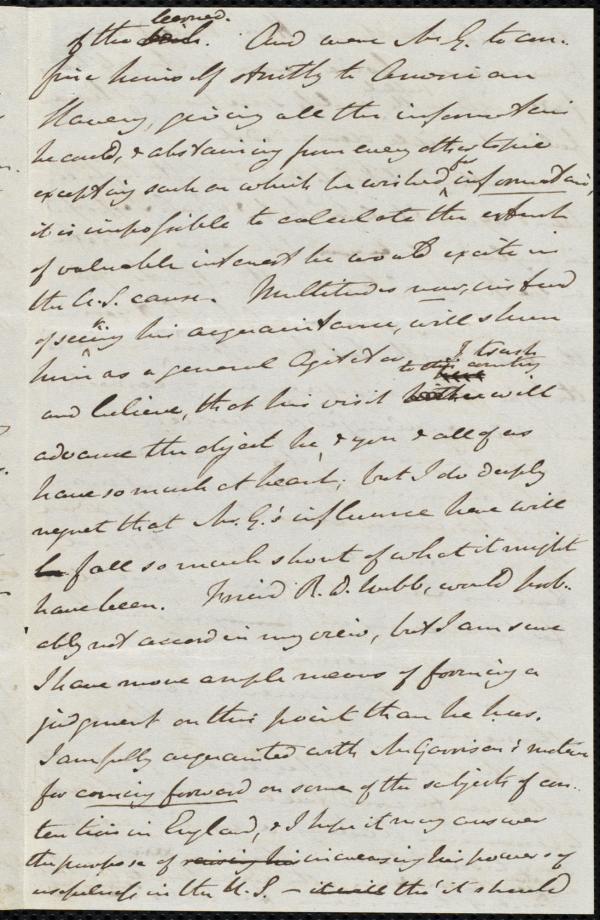 learned.
of the And were Mr G. to con-
fine himself strictly to American
Slavery, giving all the information
he could, & abstaining from every other topic
excepting such on which he wished for information,
it is impossible to calculate the extent
of valuable interest he would excite in
the A.S. cause. Multitudes now, instead
of seeking his acquaintance, will shun
him as a general Agitator. I trust
and believe, that his visit to this country will
advance the object he & you & all of us
have so much at heart; but I do deeply
regret that Mr G.'s influence here will
fall so much short of what it might
have been. Friend R. D. Webb, would prob-
ably not accord in my view, but I am sure
I have more ample means of forming a
judgment on this point than he has.
I am fully acquainted with Mr Garrison's motive
for coming forward on some of the subjects of con-
tention in England, & I hope it may answer
the purpose of increasing his powers of
usefulness in the U.S. – tho' it should